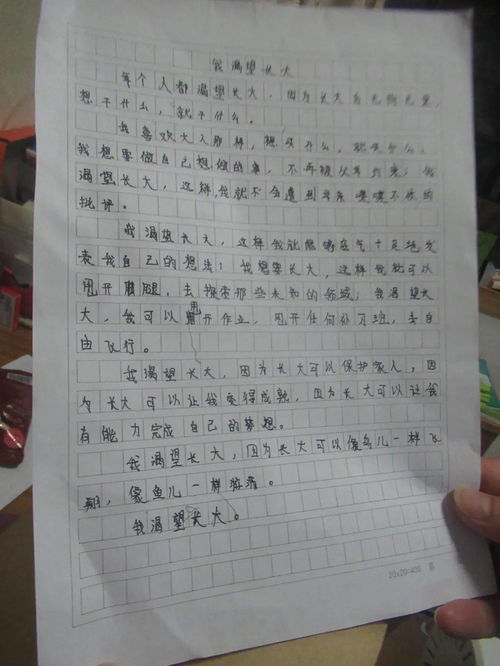 我渴望长大
每个人都渴望长大，因为长大后无拘无束，
想干什么，就干什么。
我喜欢大人那样，想买什么，就买什么。
我想要做自己想做的事，不再被父母约束；我
渴望长大，这样，我就不会遭到母亲喋喋不休的
批评。
我渴望长大，这样我就能够底气十足地发
表我自己的想法；我想要长大，这样我就可以
甩开腿，去探索那些未知的领域；我渴望长
大，我可以甩开作业，甩开任何补习班，去自
由飞行。
我渴望长大，因为长大可以保护家人，因
为长大可以让我变得成熟，因为长大可以让我
有能力完成自己的梦想。
我渴望长大，因为长大可以像鸟儿一样飞
翔，像鱼儿一样游。
我渴望长大。
20x20=400